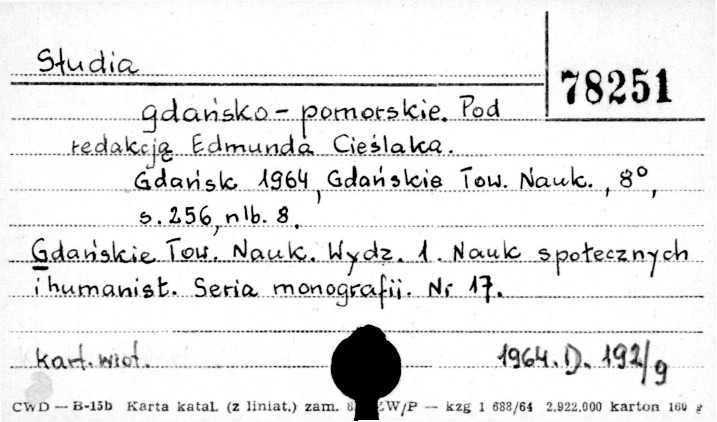 Studia
78251
gdańsko - pomorskie. Pod
redakcją Edmunda Cieślaka.
Gdańsk 1964, Gdańskie Tow. Nauk., 8°,
s. 256, nlb. 8.
Gdańskie Tow. Nauk. Wydz. 1. Nauk społecznych
i humanist. Seria monografii. Nr 17.
kart. wiot.
1964. D. 192/9
CWD — B-15b Karta katal. (z liniat.) zam. ZW/P — kzg 1 688/64 2.922.000 karton 160 g